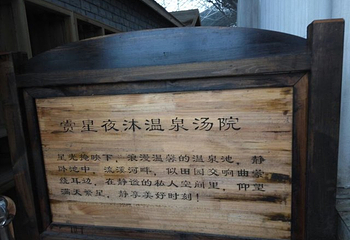 赏星夜沐温泉汤院
星光掩映下，浪漫温馨的温泉池，静
卧院中，流溪河畔，似田园交响曲萦
绕耳边，在静谧的私人空间里，仰望
满天繁星，静享美好时刻！